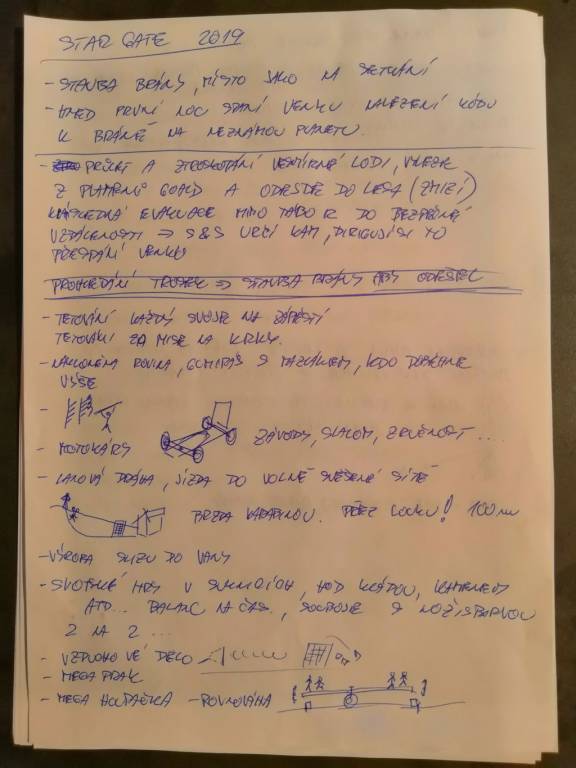 STAR GATE 2019
- STAVBA BRÁNY, MÍSTO JAKO NA SETKÁNÍ
- HNED PRVNÍ NOC SPANÍ VENKU NALEZENÍ KÓDU
K BRÁNĚ NA NEZNÁMOU PLANETU.
- PŘÍLET A ZTROSKOTÁNÍ VESMÍRNÉ LODI, VYLEZE
Z PLAMENŮ GOAULD A ODEJDE DO LESA (ZMIZÍ)
NÁSLEDNÁ EVAKUACE MIMO TÁBOR DO BEZPEČNÉ
VZDÁLENOSTI ⇒ S&S URČÍ KAM, DIRIGUJÍ SI TO
PŘESPÁNÍ VENKU
PROHLEDÁNÍ TROSEK ⇒ STAVBA BRÁNY ABY ODEŠEL
- TETOVÁNÍ KAŽDÝ SVOJE NA ZÁPĚSTÍ
TETOVÁNÍ ZA MISE NA KRKY.
- NAKLONĚNÁ ROVINA, GUMIPÁS S MAZÁKEM, KDO DOSÁHNE
VÝŠE
-
- MOTOKÁRY ZÁVODY, SLALOM, ZRUČNOST ...
- LANOVÁ DRÁHA, JÍZDA DO VOLNĚ SVĚŠENÉ SÍTĚ
BRZDA KARABINOU. PŘES LOUKU! 100m
- VÝROBA SLIZU DO VANY
- SKOTSKÉ HRY V SUKNÍCH, HOD KLÁDOU, KAMENEM
ATD... BALANC NA ČAS, SOUBOJE S NOŽI S BARVOU
2 NA 2 ...
- VZDUCHOVÉ DĚLO
- MEGA PRAK
- MEGA HOUPAČKA - ROVNOVÁHA